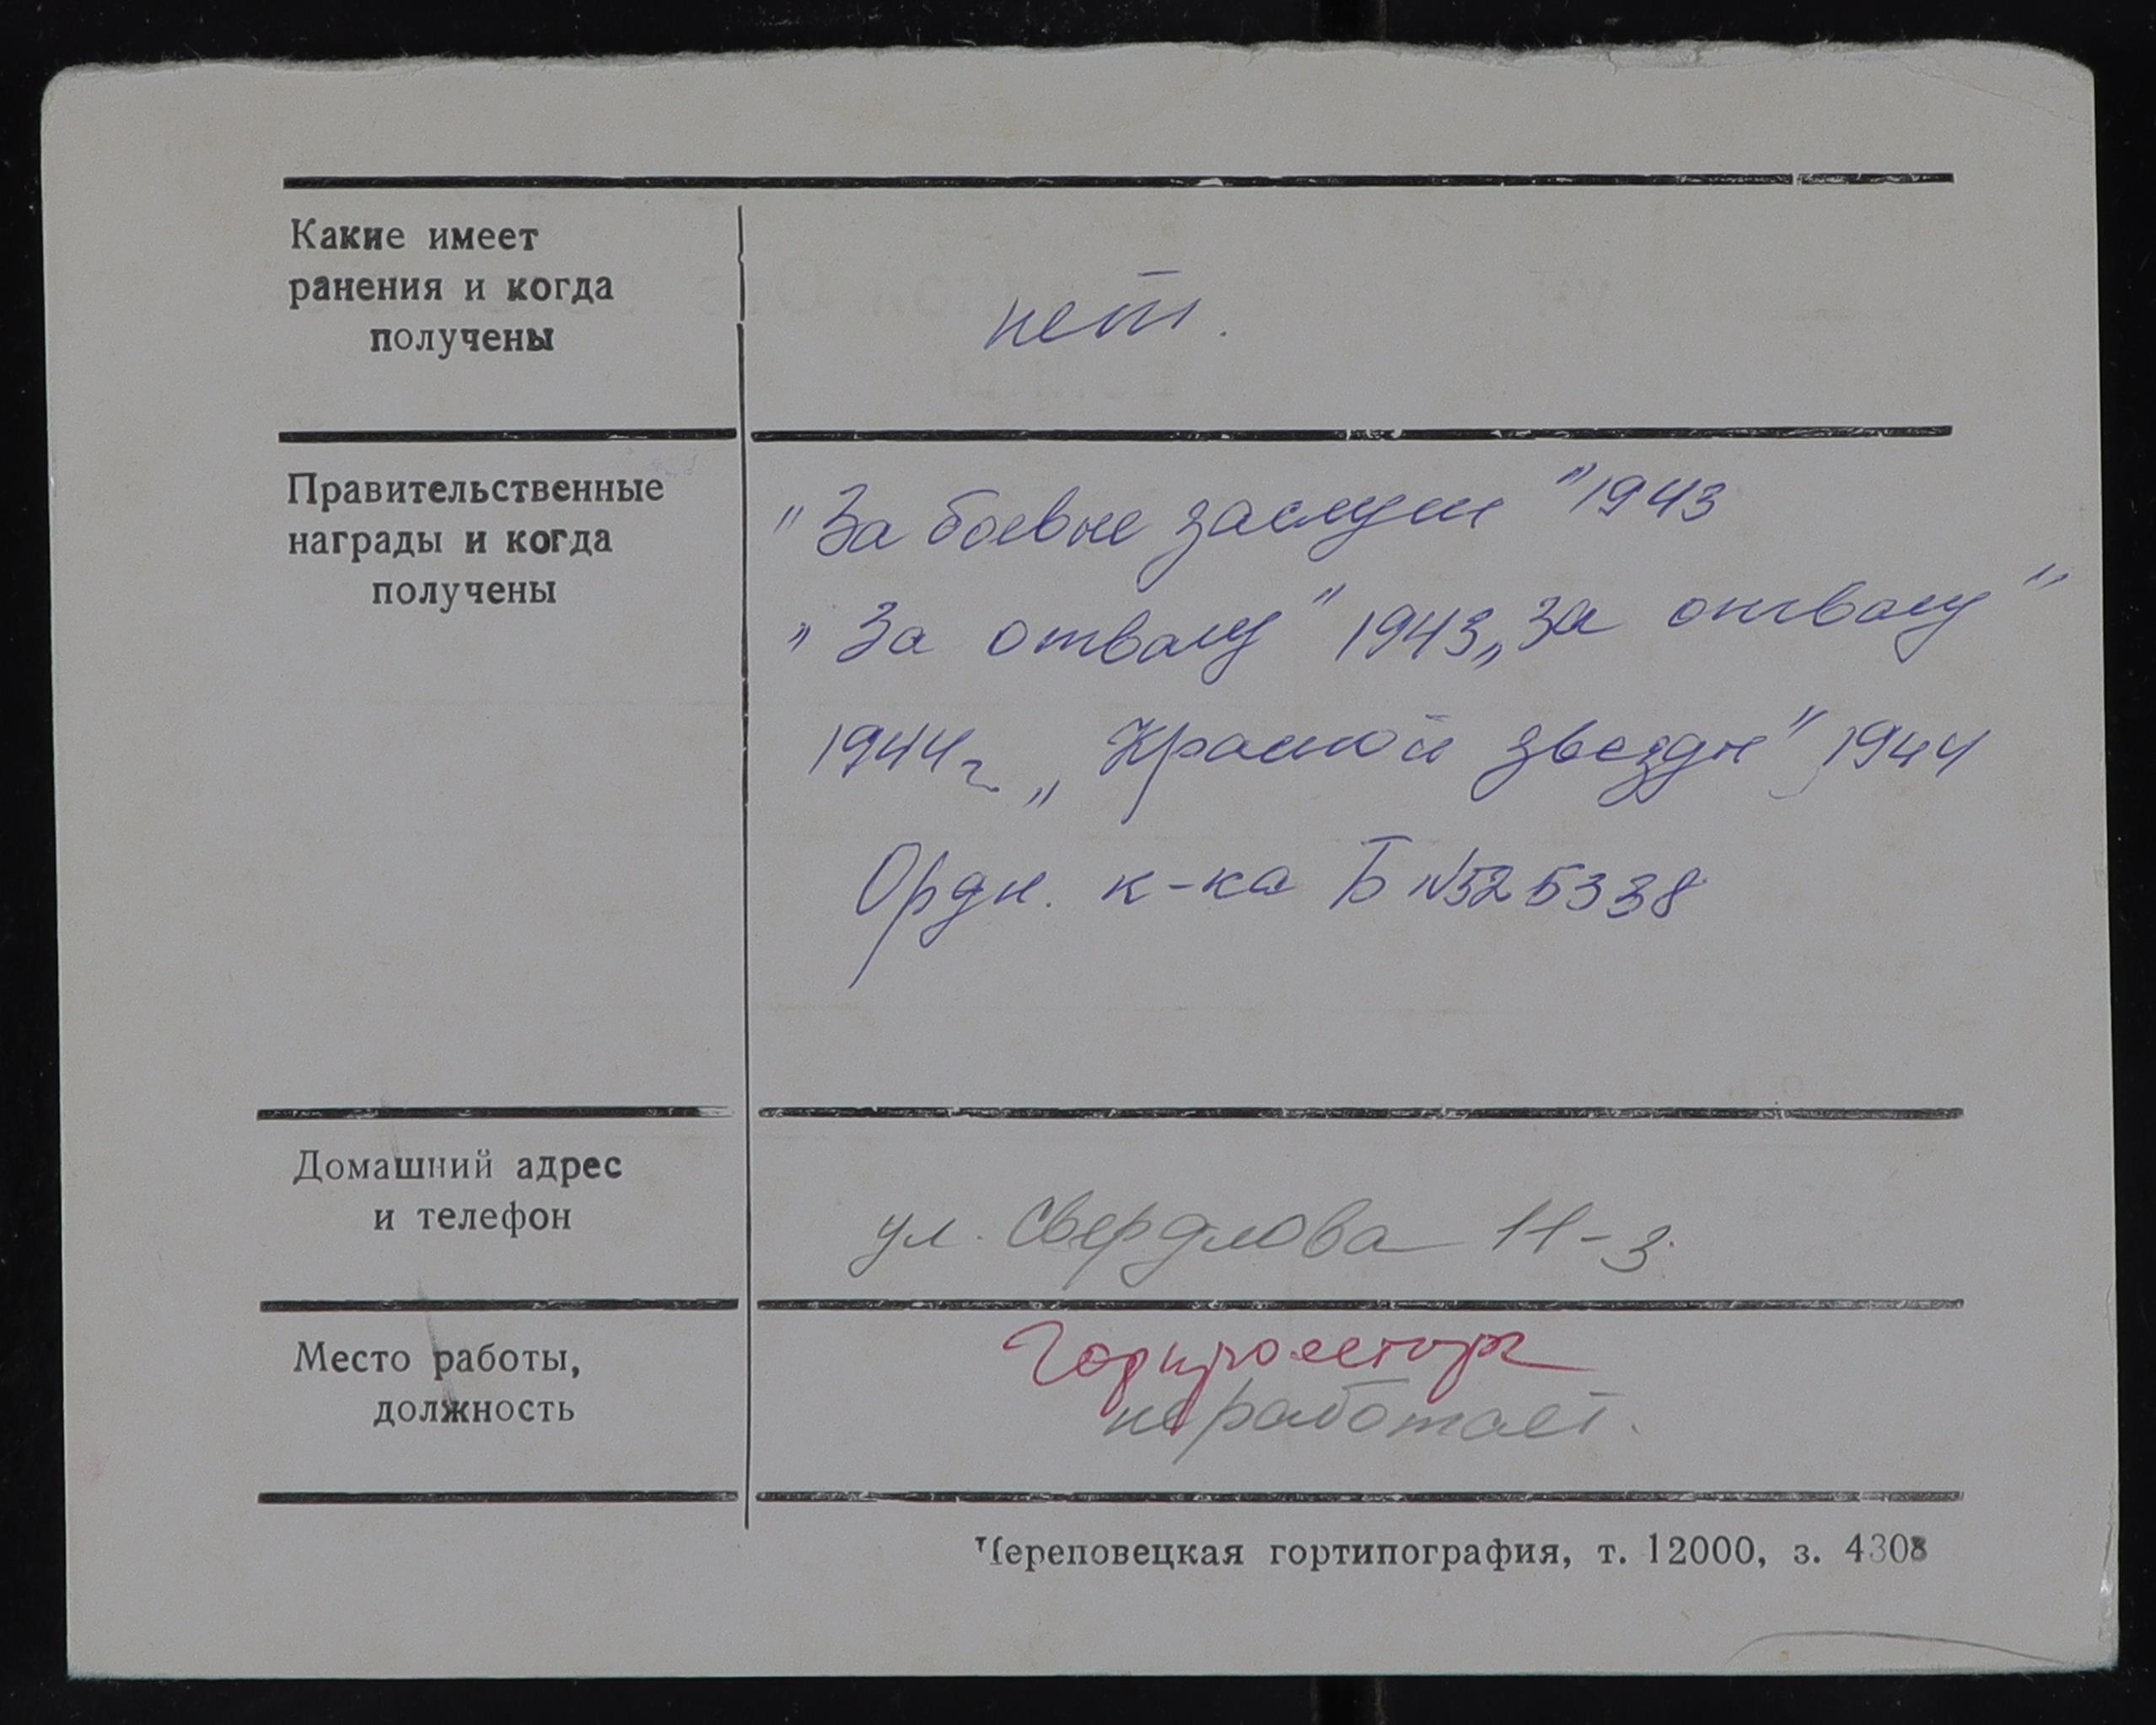 Какие имеет
ранения и когда
получены
нет.
Правительственные
награды и когда
получены
"За боевые заслуги" 1943
"За отвагу" 1943 „За отвагу"
1944г „Красной звезды" 1944
Ордн. к-ка Б №525338
Домашний адрес
и телефон
ул. Свердлова 11-3.
Место работы,
должность
не работает.
Череповецкая гортипография, т. 12000, з. 4308